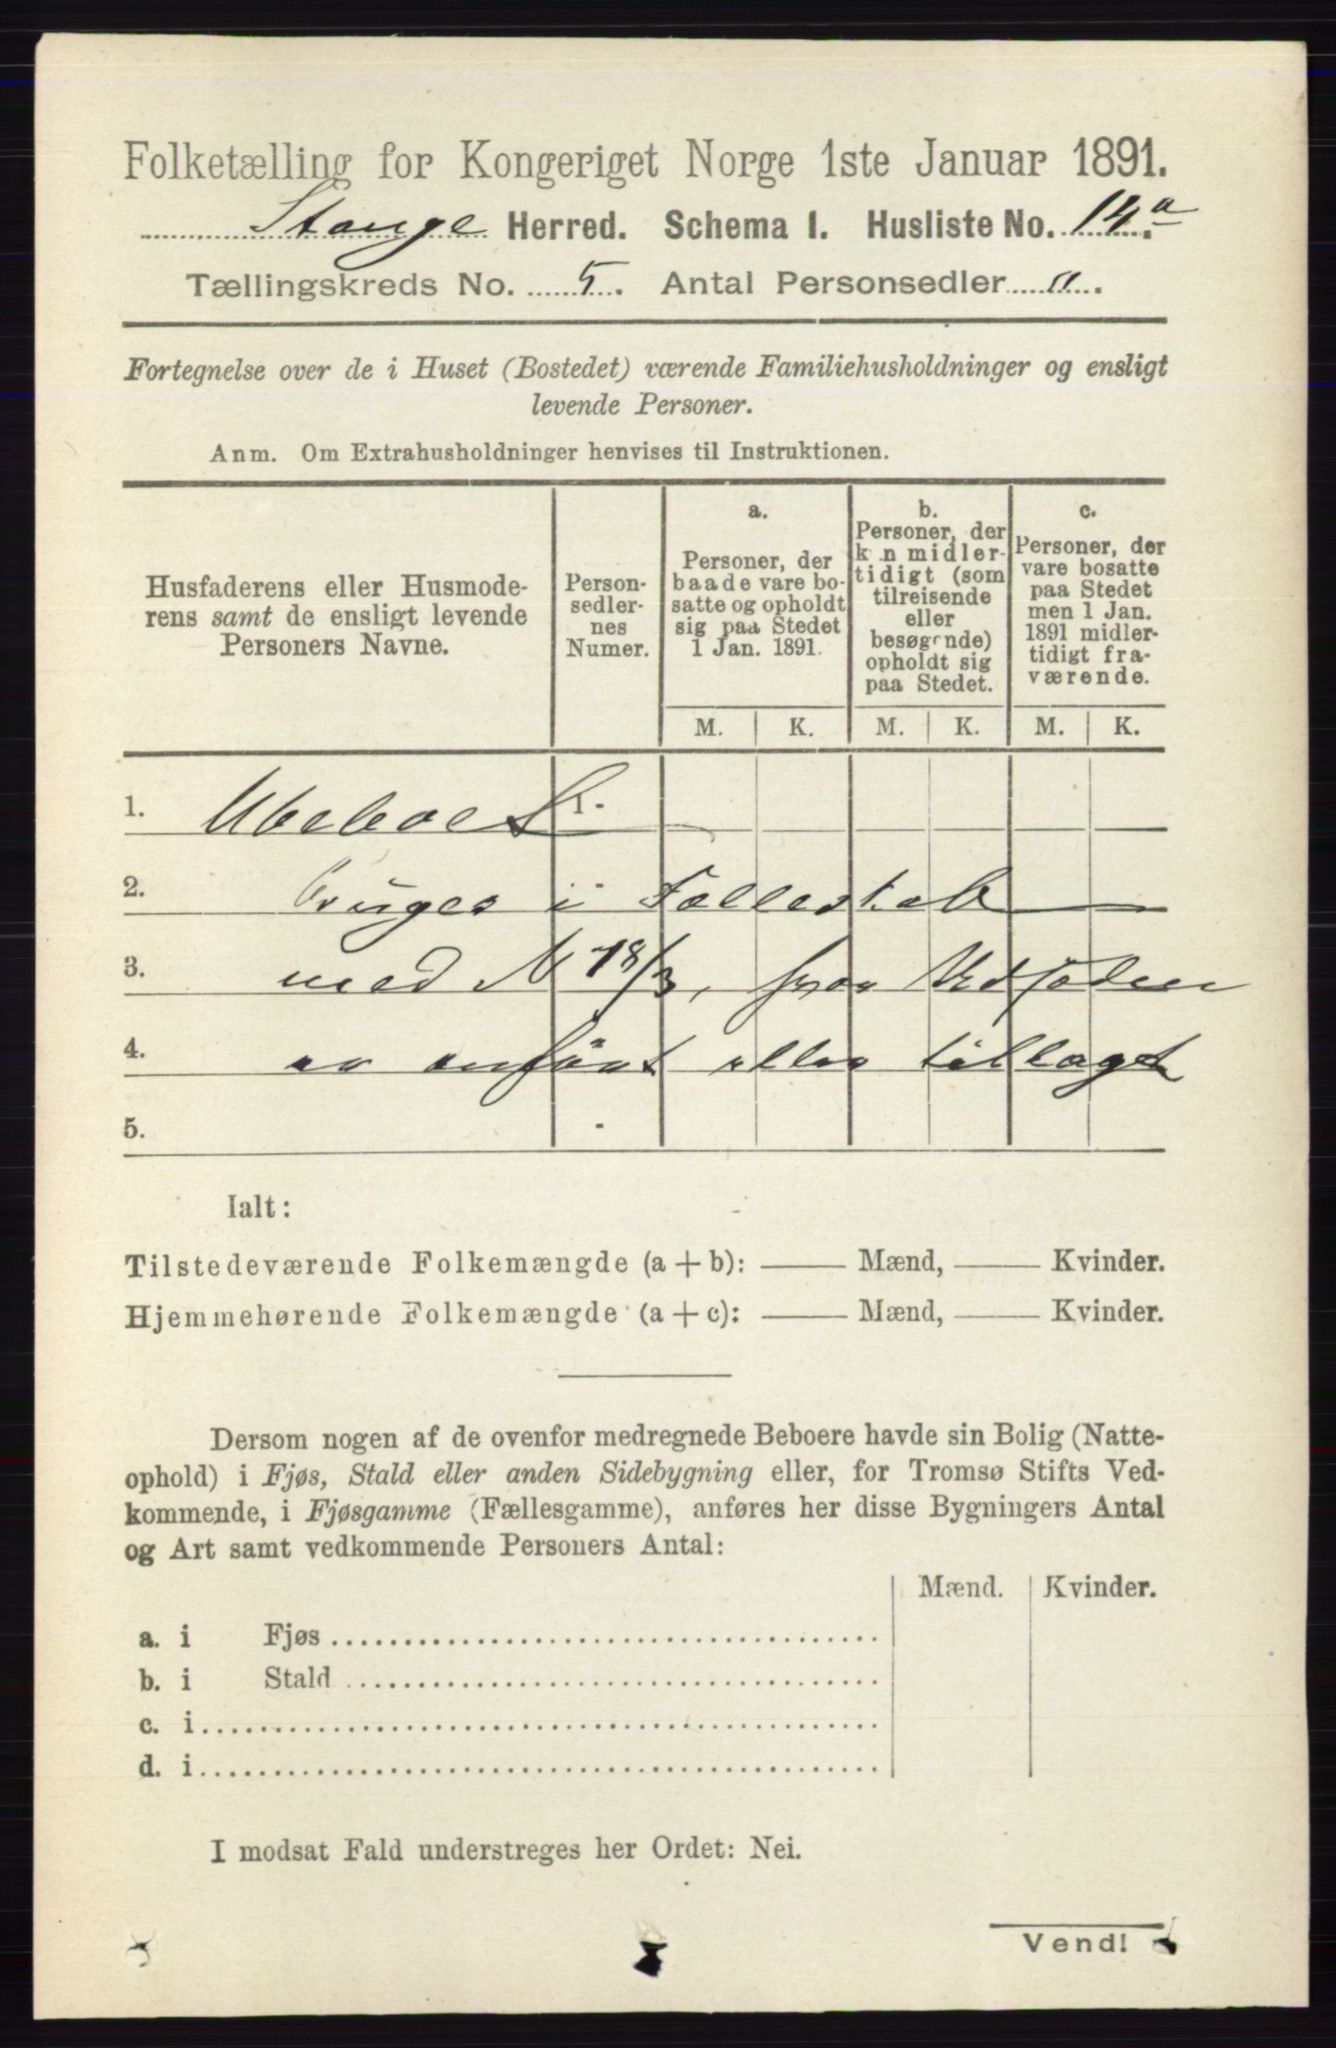 Folketælling for Kongeriget Norge 1ste Januar 1891.
Stange Herred. Schema I. Husliste No. 14a.
Tællingskreds No. 5. Antal Personsedler „.
Fortegnelse over de i Huset (Bostedet) værende Familiehusholdninger og ensligt
levende Personer.
Anm. Om Extrahusholdninger henvises til Instruktionen.
Husfaderens eller Husmode-
rens samt de ensligt levende
Personers Navne.
Person-
sedler-
nes
Numer.
a.
Personer, der
baade vare bo-
satte og opholdt
sig paa Stedet
1 Jan. 1891.
b.
Personer, der
kun midler-
tidigt (som
tilreisende
eller
besøgende)
opholdt sig
paa Stedet.
c.
Personer, der
vare bosatte
paa Stedet
men 1 Jan.
1891 midler-
tidigt fra-
værende.
M. K. M. K. M. K.
1. Ubeboet 1.
2. bruges i Fælleskab
3. med N 18/3, hvor Udsæden
4. er anført eller tillagt
5.
Ialt:
Tilstedeværende Folkemængde (a + b): —— Mænd, —— Kvinder.
Hjemmehørende Folkemængde (a + c): —— Mænd, —— Kvinder.
Dersom nogen af de ovenfor medregnede Beboere havde sin Bolig (Natte-
ophold) i Fjøs, Stald eller anden Sidebygning eller, for Tromsø Stifts Ved-
kommende, i Fjøsgamme (Fællesgamme), anføres her disse Bygningers Antal
og Art samt vedkommende Personers Antal:
Mænd. Kvinder.
a. i Fjøs
b. i Stald
c. i
d. i
I modsat Fald understreges her Ordet: Nei.
Vend!